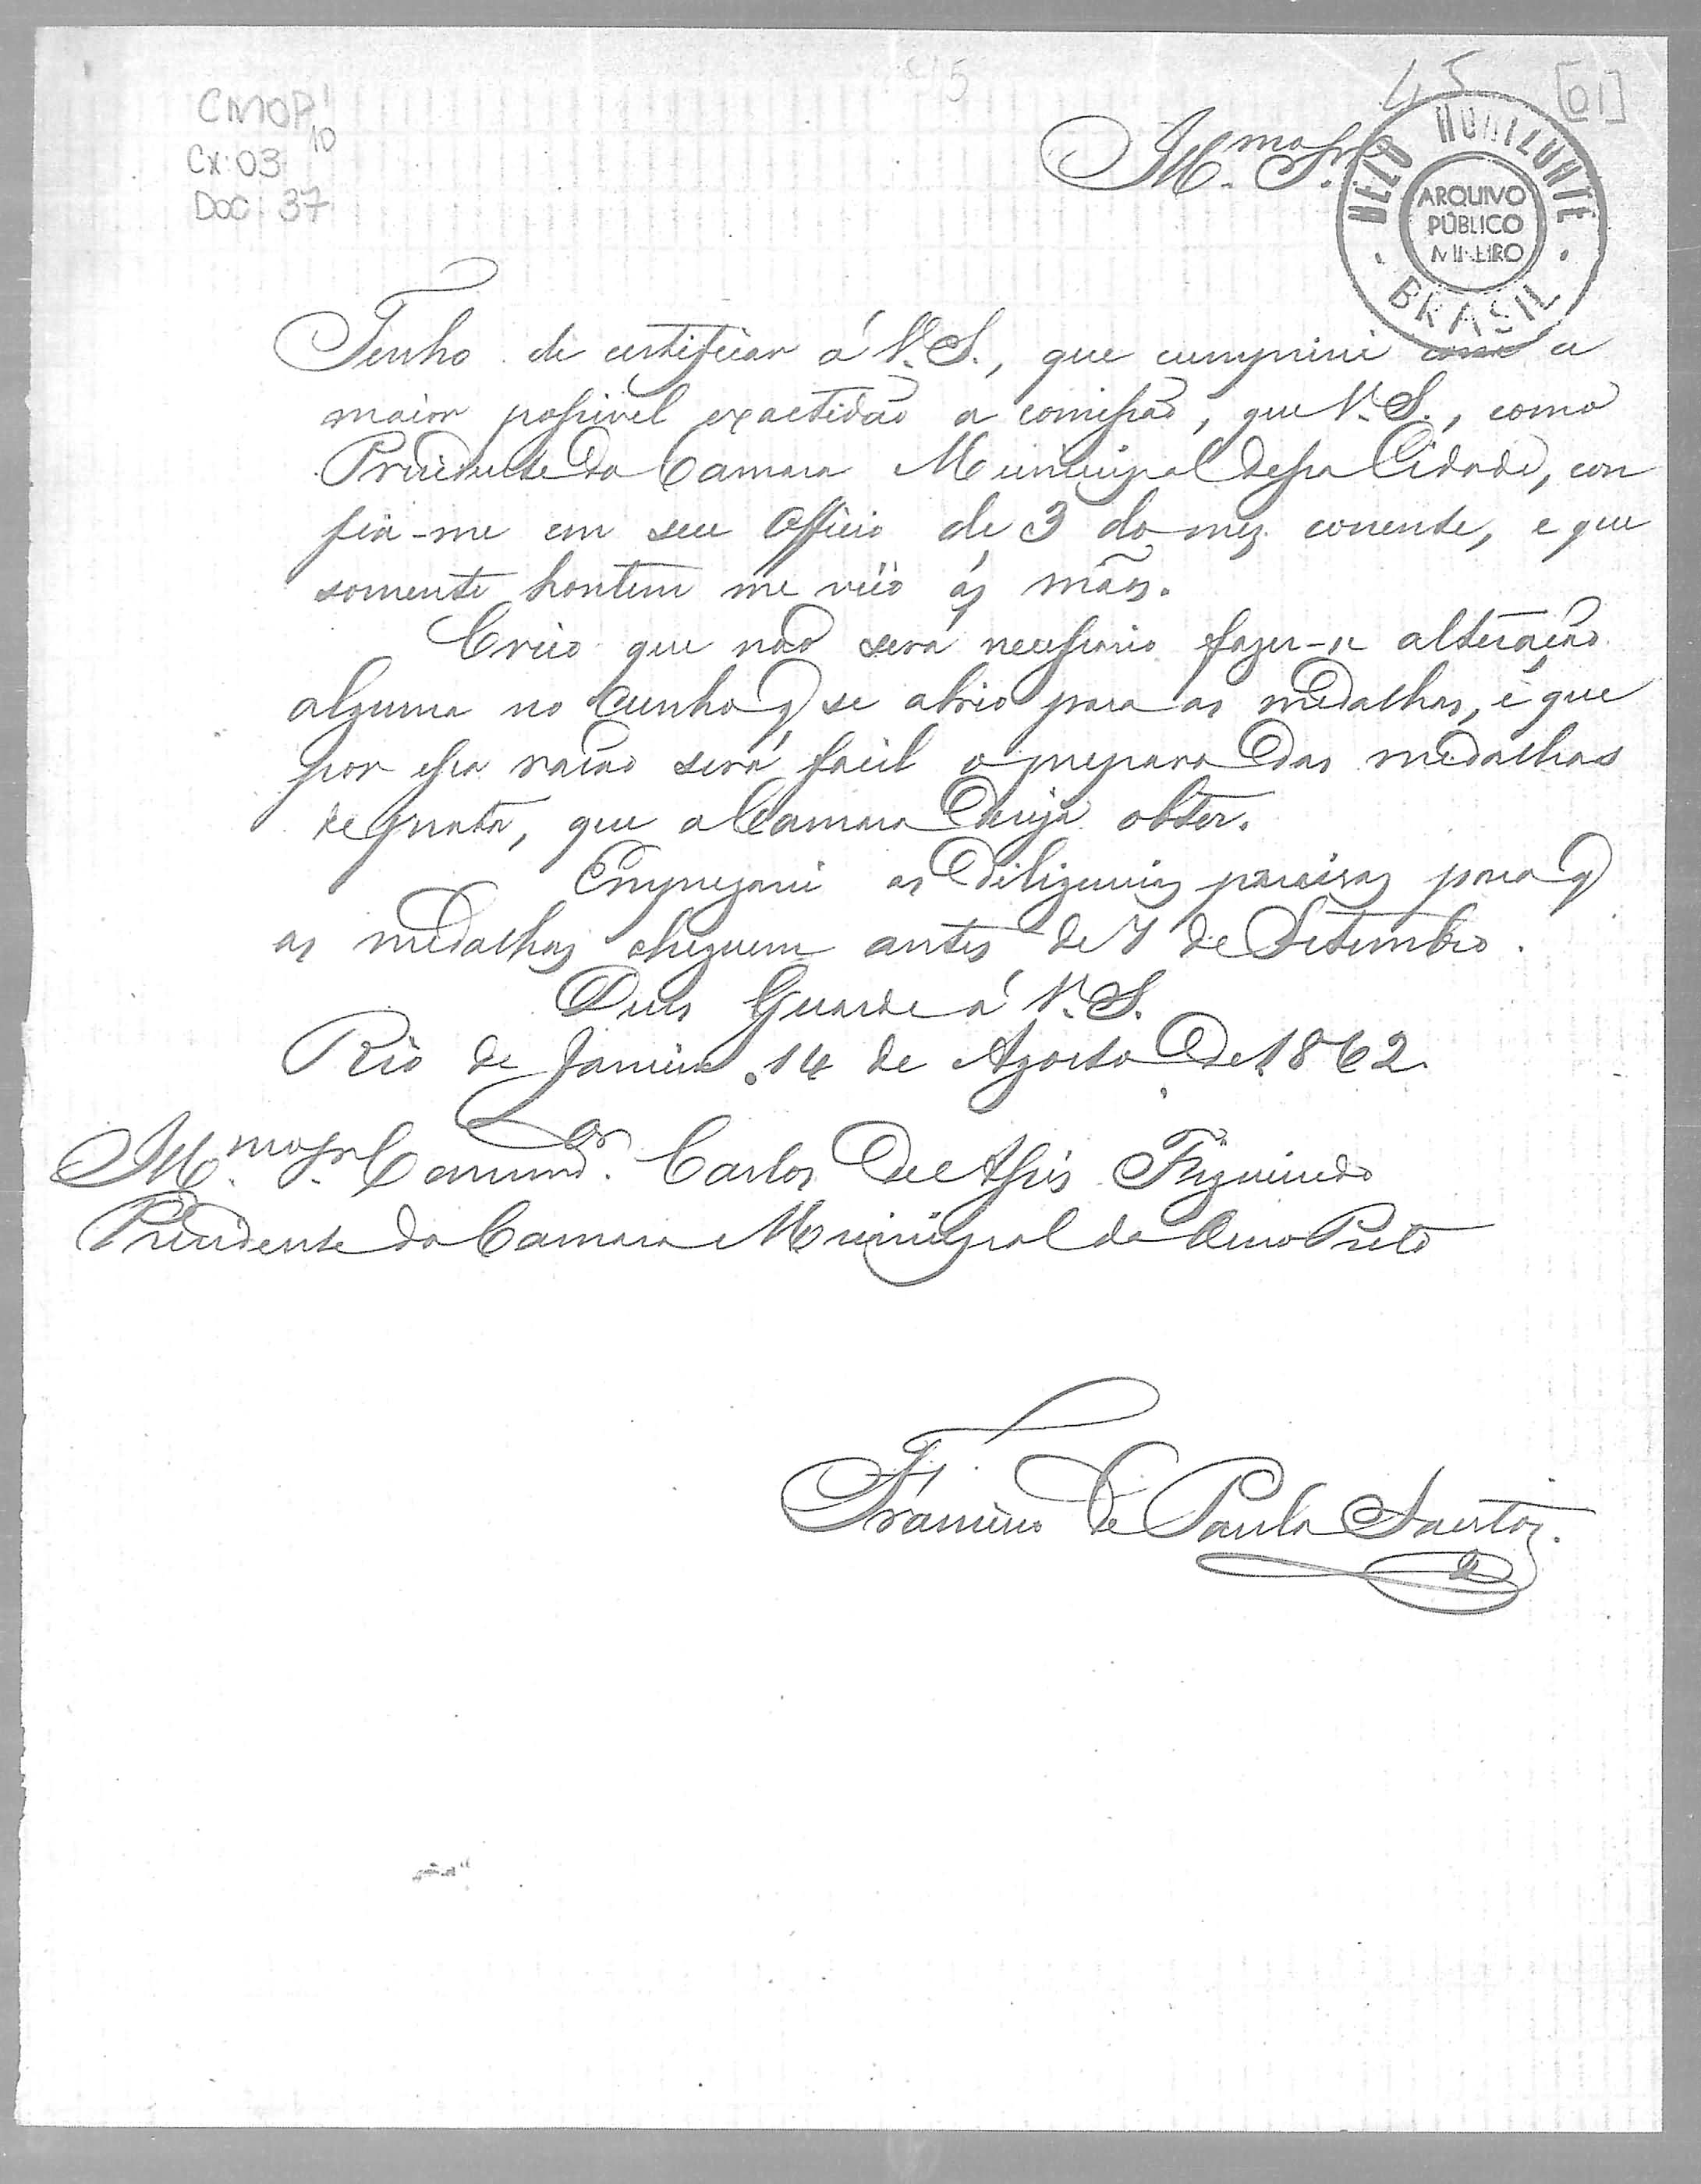 45
[01]
CMOP 1/10
Cx: 03
Doc: 37
BELO HORIZONTE
ARQUIVO
PÚBLICO
MINEIRO
BRASIL
Ill.mo Sr.
Tenho de certificar á V.S., que cumprirei com a
maior possivel exactidão a comissão, que V.S., como
Presidente da Camara Municipal dessa Cidade, con
fia-me em seu officio de 3 do mez corrente, e que
somente hontem me veio ás mãos.
Creio que não será necessario fazer-se alteração
alguma no cunho q se abrio para as medalhas, e que
por essa rasão será facil o preparo das medalhas
de prata, que a Camara deseja obter.
Empregarei as diligencias precisas para q
as medalhas cheguem antes de 7 de Setembro.
Deus Guarde á V.S.
Rio de Janeiro 14 de Agosto de 1862
Ill.mo Sr. Commd.or Carlos de Assis Figueiredo
Presidente da Camara Municipal do Ouro Preto
Francisco de Paula Santos.